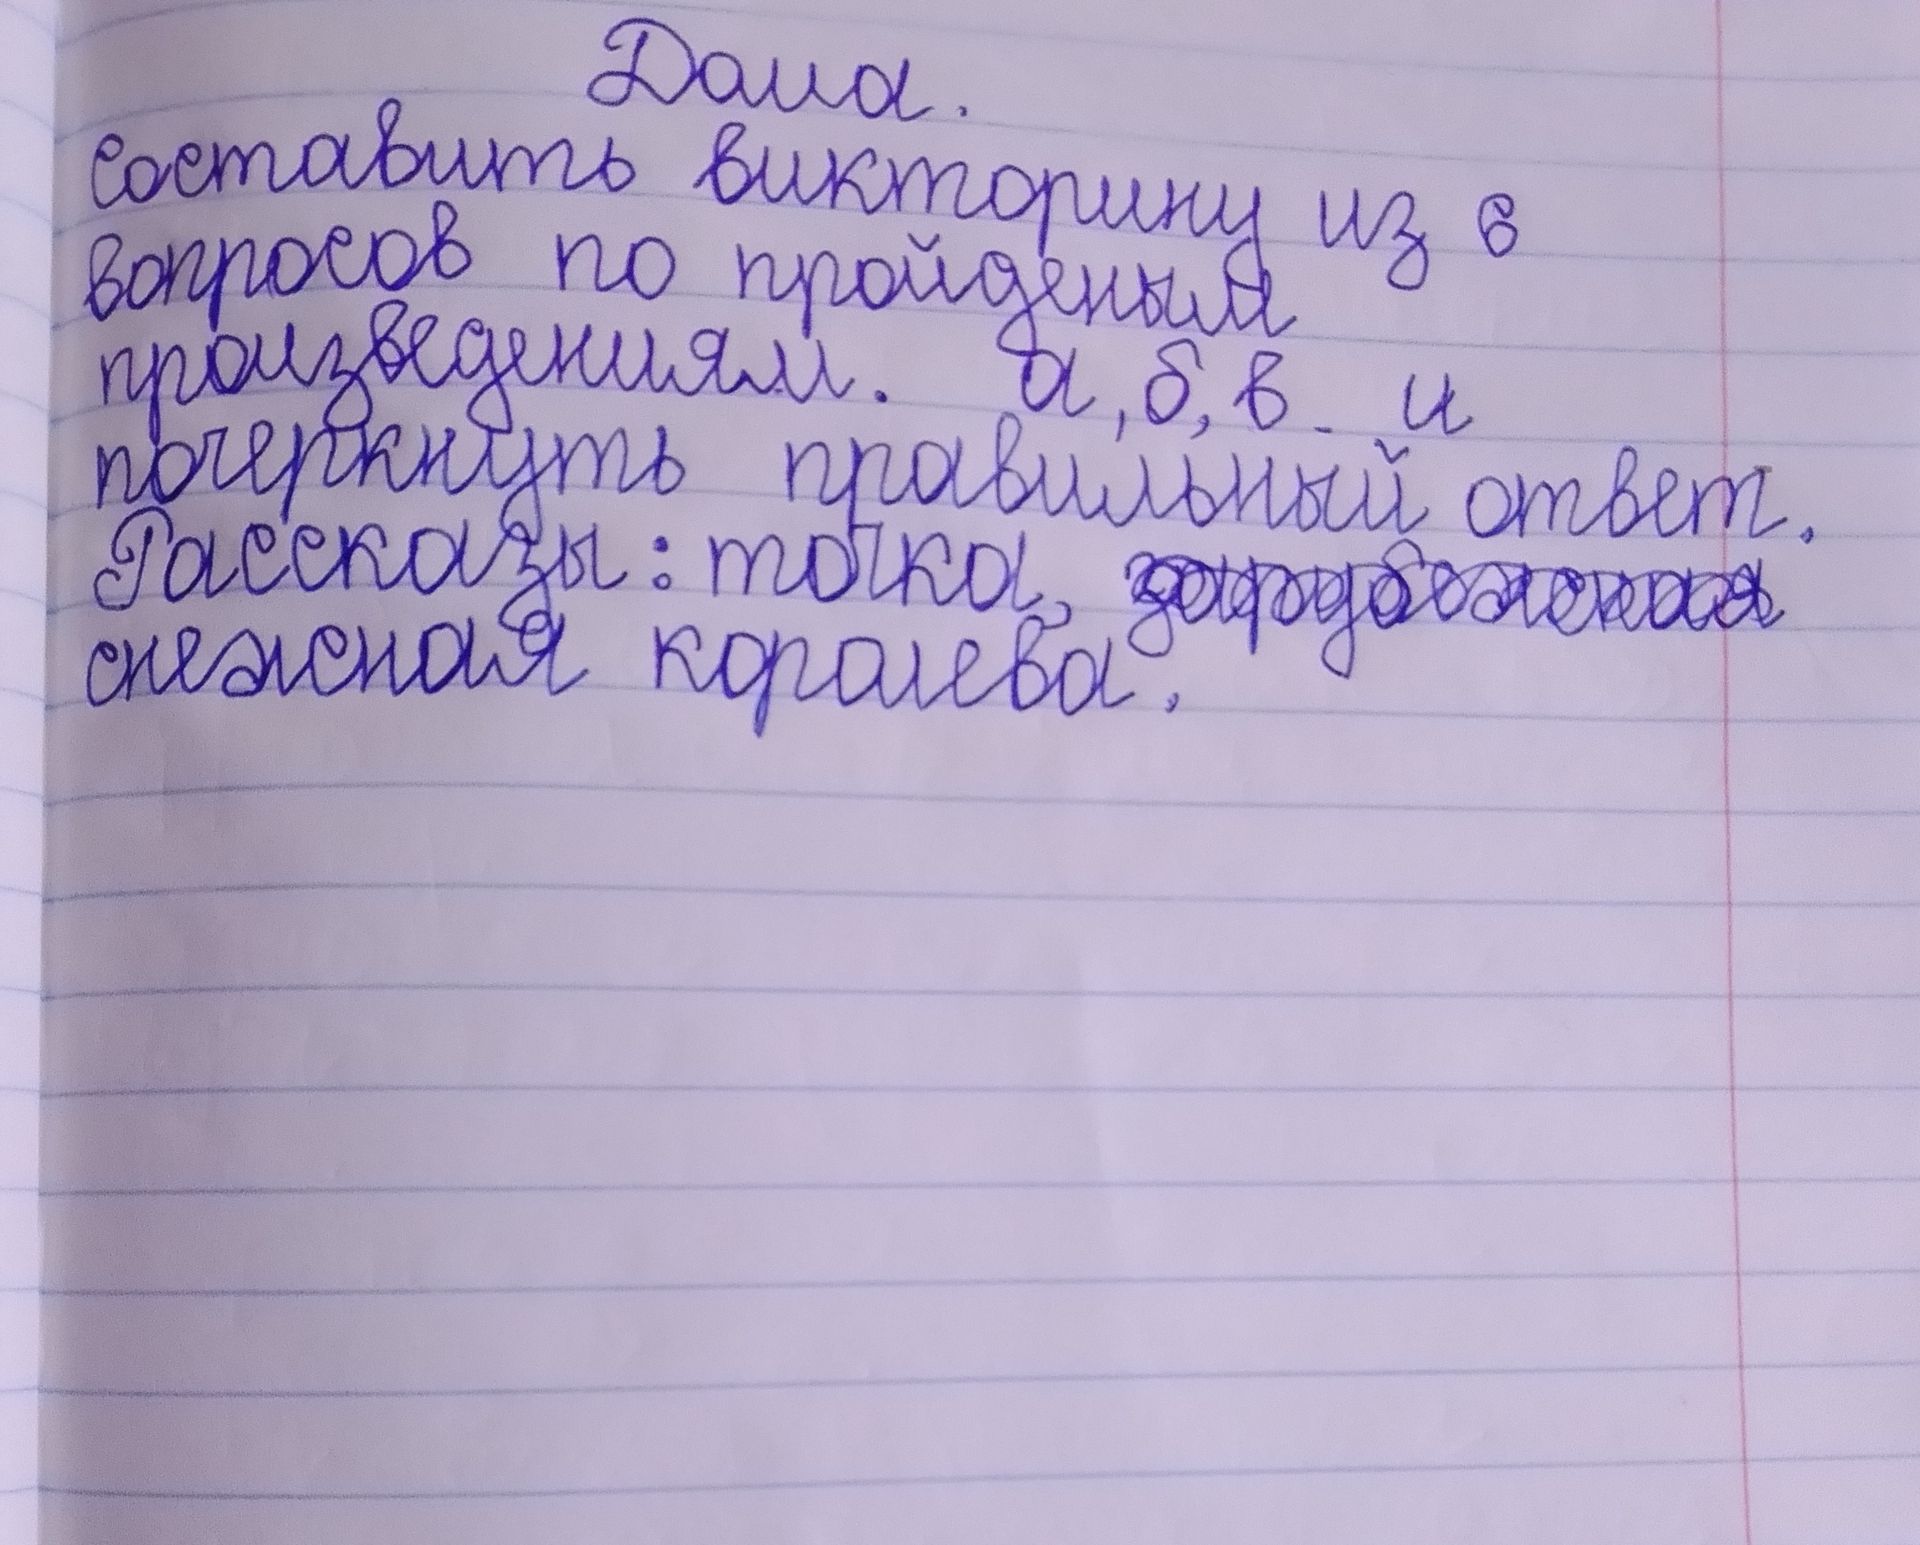 Дома.
составить викторину из 6
вопросов по пройденым
произведениям. а, б, в. и
почеркнуть правильный ответ.
Рассказы: точка,
снежная королева.